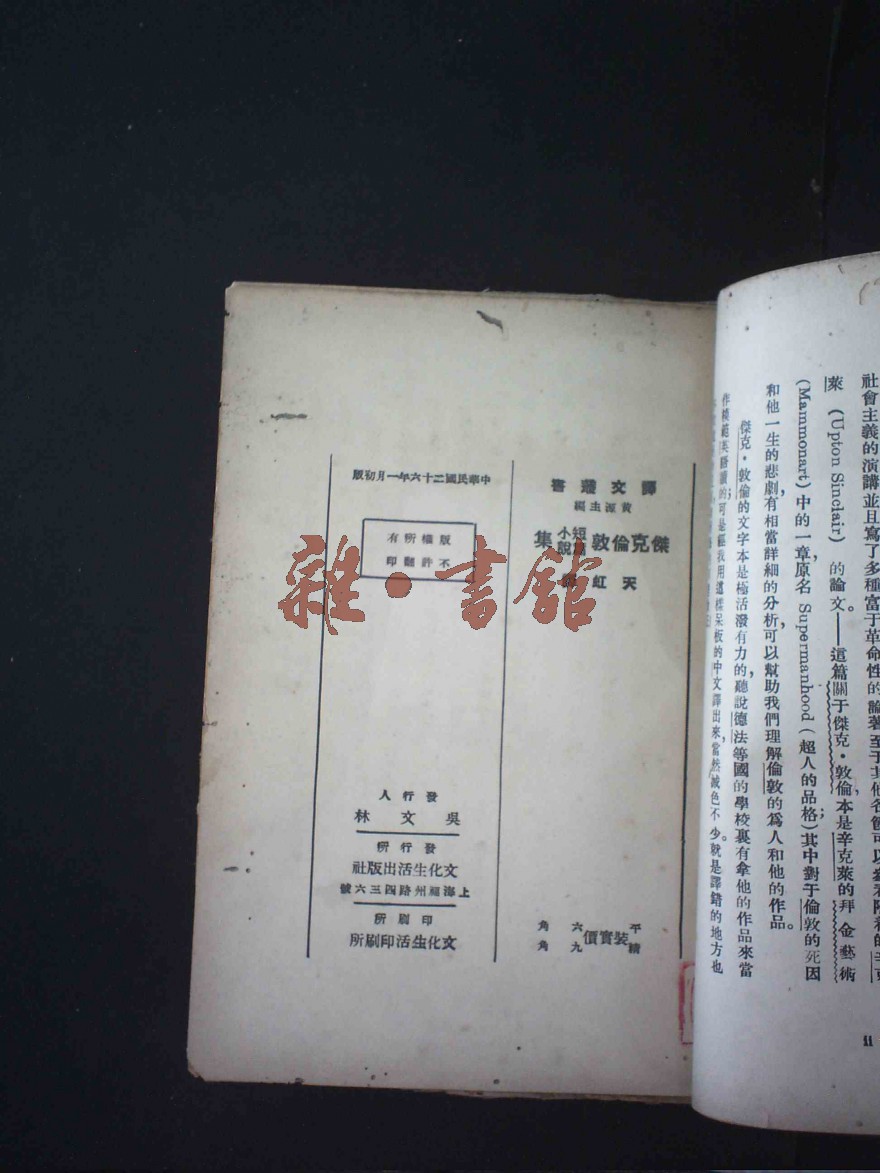 譯文叢書
黃源主編
傑克倫敦短篇小說集
天虹
平裝實價六角
精裝實價九角
中華民國二十六年一月初版
版權所有
不許翻印
發行人
吳文林
發行所
文化生活出版社
上海福州路四三六號
印刷所
文化生活印刷所
雜·書館
萊 (Upton Sinclair) 的論文。——這篇關于傑克·敦倫本是辛克萊的拜金藝術
(Mammonart) 中的一章,原名 Supermanhood (超人的品格);其中對于倫敦的死因
和他一生的悲劇,有相當詳細的分析,可以幫助我們理解倫敦的爲人和他的作品。
傑克·敦倫的文字本是極活潑有力的,聽說德法等國的學校裏有拿他的作品來當
作模範英語讀的;可是經我用這樣呆板的中文譯出來,當然減色不少。就是譯錯的地方也
11